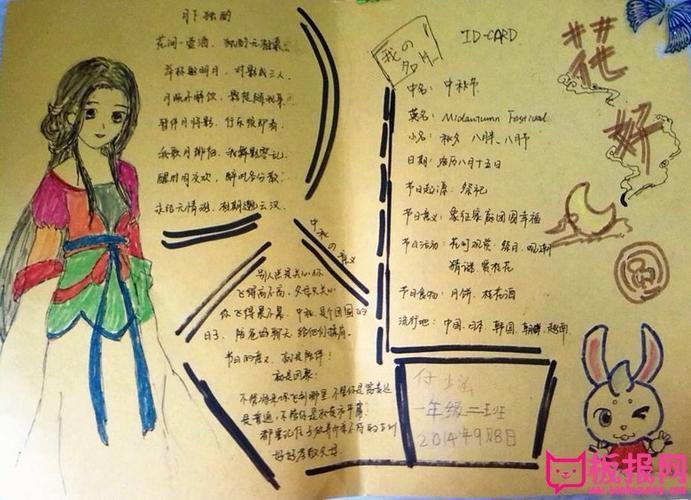 月下独酌
花间一壶酒，独酌无相亲。
举杯邀明月，对影成三人。
月既不解饮，影徒随我身。
暂伴月将影，行乐须及春。
我歌月徘徊，我舞影零乱。
醒时同交欢，醉时各分散。
永结无情游，相期邈云汉。
中秋の意义
关心你
飞得高不高，父母只关心
你飞得累不累。中秋是个团圆的
日子，陪爸妈聊天，给他们
节日的意义，就是陪伴！
就是团聚！
不管将来你飞到哪里，不管你是富贵还
是普通，不管你是
都要记住
好好孝敬父母
我の名片
ID-CARD
中名：中秋节
英名：Midautumn Festival
小名：秋夕 八月半、八月节
日期：农历八月十五日
节日起源：祭祀
节日意义：象征家庭团圆幸福
节日活动：花间观赏、祭月、观潮
猜谜、赏桂花
节日食物：月饼、桂花酒
流行地：中国、日本、韩国、朝鲜、越南
花
好
月
圆
一年级二班
2014年9月8日
板报网